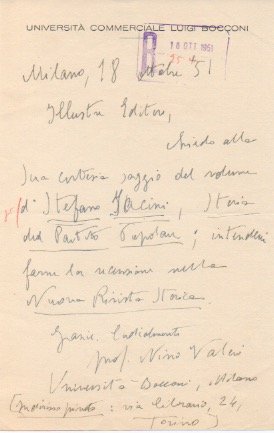 UNIVERSITÀ COMMERCIALE LUIGI BOCCONI
B
10 OTT 1951
Milano, 18 ottobre 51
Illustre Editore,
chiedo alla
Sua cortesia saggio del volume
di Stefano Jacini, Storia
del Partito Popolare; intenderei
farne la recensione nella
Nuova Rivista Storica.
Grazie. Cordialmente
prof. Nino Valeri
Università Bocconi, Milano
(indirizzo privato: via Cibrario, 24,
Torino)